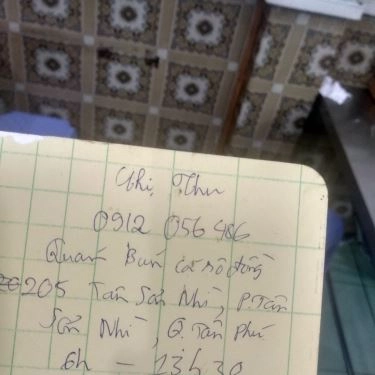 Chị Thu
0912 056 486
Quán Bún cá rô đồng
205 Tân Sơn Nhì, P. Tân
Sơn Nhì, Q. Tân Phú
6h - 13h30